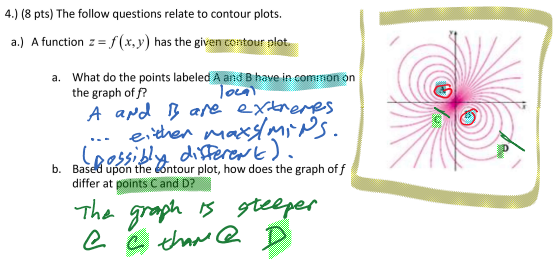 4.) (8 pts) The following questions relate to contour plots.
a.) A function z = f(x,y) has the given contour plot.
a. What do the points labeled A and B have in common on
the graph of f?
local
A and B are extremes
... either maxs/mins.
(possibly different).
b. Based upon the contour plot, how does the graph of f
differ at points C and D?
The graph is steeper
@ C than @ D
C
D